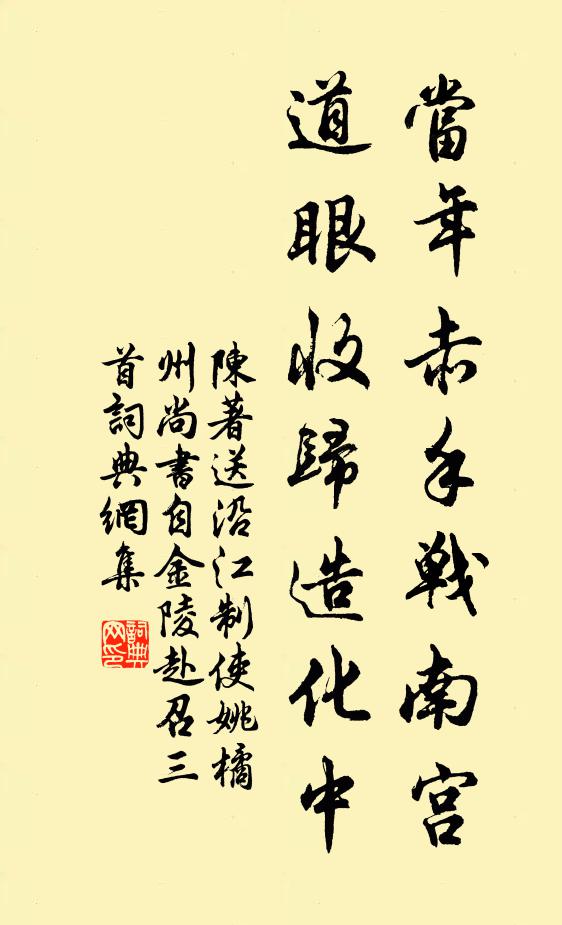 當年赤手戰南宮
道眼收歸造化中
陳著送沿江制使姚橘
州尚書自金陵赴召三
首詞典網集
詞典網印